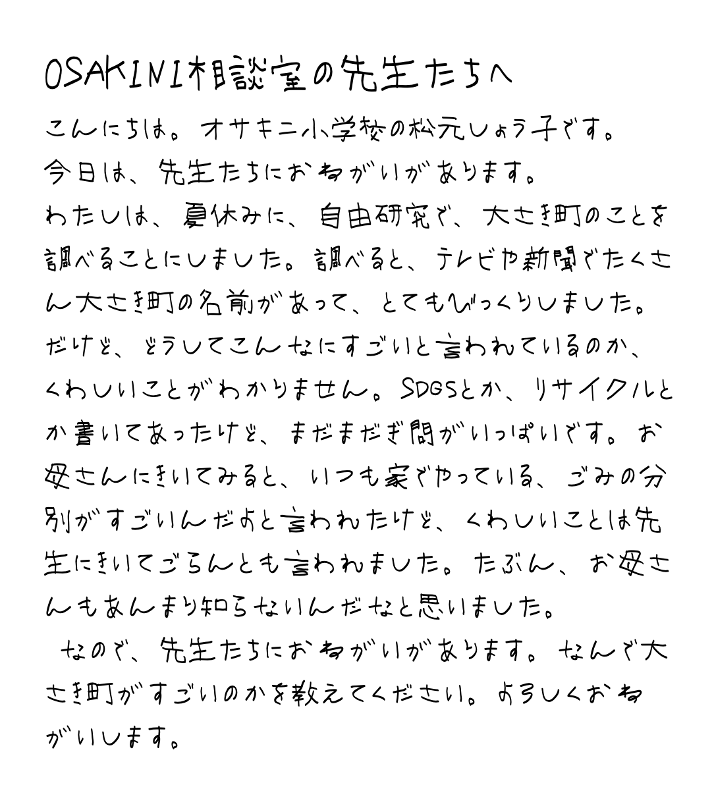 OSAKINI相談室の先生たちへ
こんにちは。オサキニ小学校の松元しょう子です。
今日は、先生たちにおねがいがあります。
わたしは、夏休みに、自由研究で、大さき町のことを
調べることにしました。調べると、テレビや新聞でたくさ
ん大さき町の名前があって、とてもびっくりしました。
だけど、どうしてこんなにすごいと言われているのか、
くわしいことがわかりません。SDGSとか、リサイクルと
か書いてあったけど、まだまだぎ問がいっぱいです。お
母さんにきいてみると、いつも家でやっている、ごみの分
別がすごいんだよと言われたけど、くわしいことは先
生にきいてごらんとも言われました。たぶん、お母さ
んもあんまり知らないんだなと思いました。
なので、先生たちにおねがいがあります。なんで大
さき町がすごいのかを教えてください。よろしくおね
がいします。